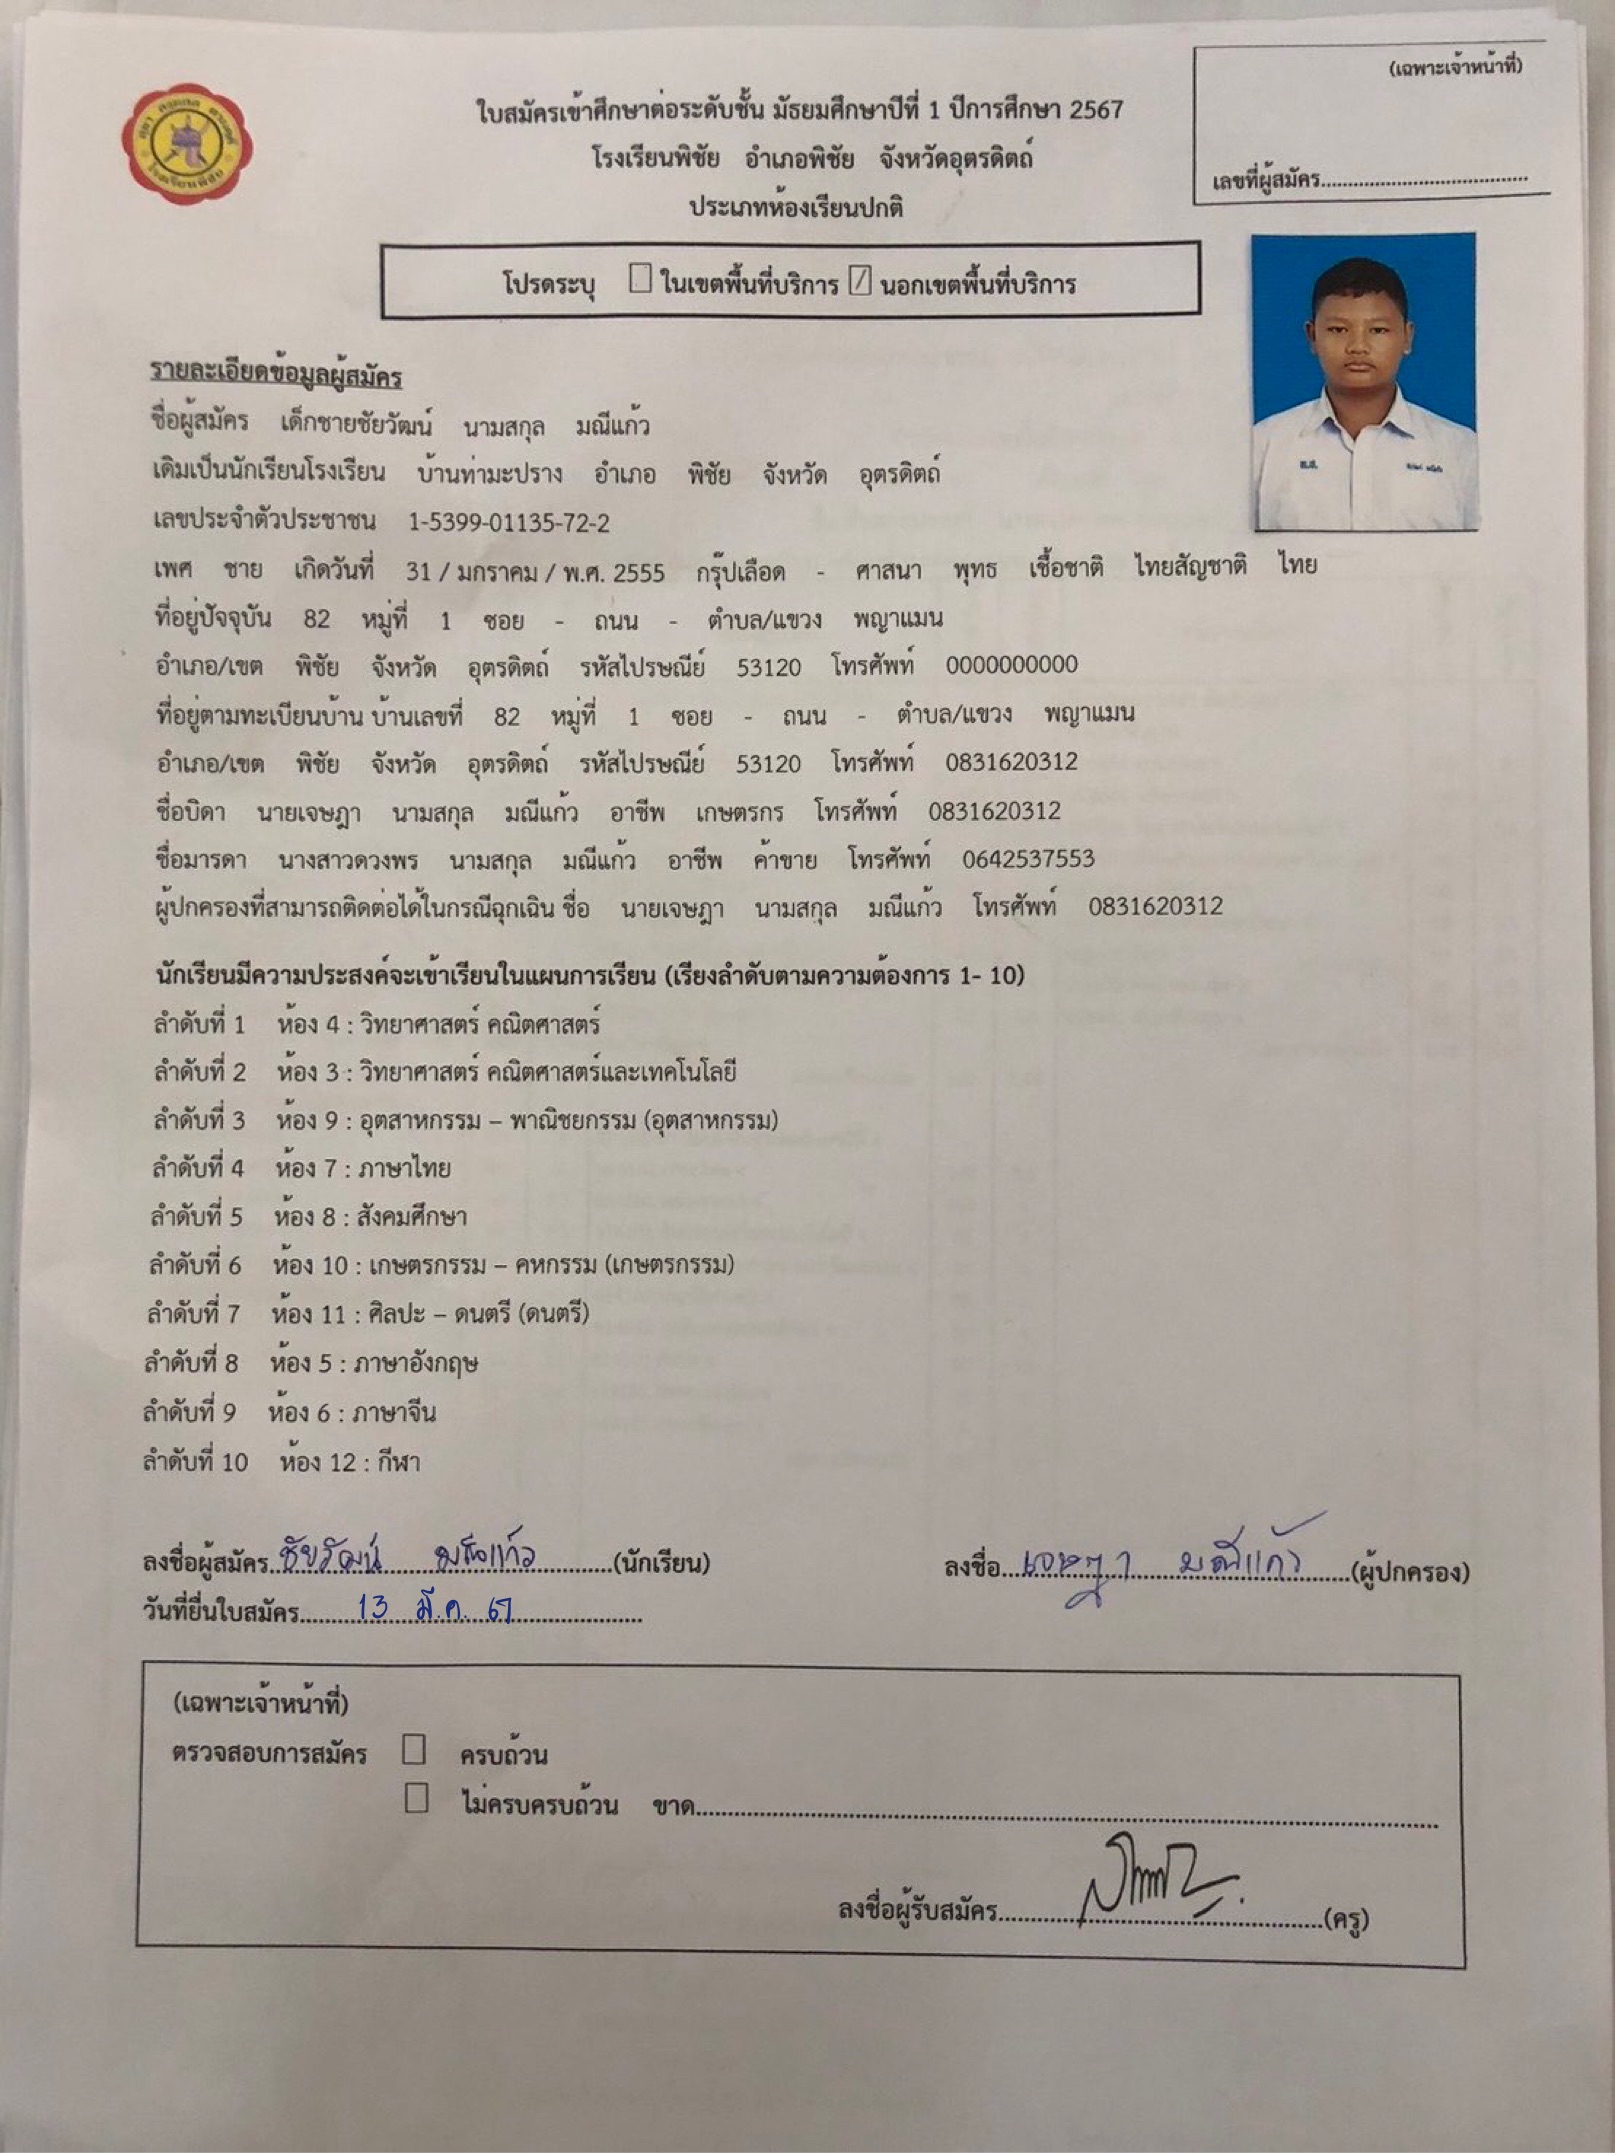 (เฉพาะเจ้าหน้าที่)
เลขที่ผู้สมัคร
โรงเรียนพิชัย
ใบสมัครเข้าศึกษาต่อระดับชั้น มัธยมศึกษาปีที่ 1 ปีการศึกษา 2567
โรงเรียนพิชัย อำเภอพิชัย จังหวัดอุตรดิตถ์
ประเภทห้องเรียนปกติ
โปรดระบุ ในเขตพื้นที่บริการ / นอกเขตพื้นที่บริการ
พ.ช.
รายละเอียดข้อมูลผู้สมัคร
ชื่อผู้สมัคร เด็กชายชัยวัฒน์ นามสกุล มณีแก้ว
เดิมเป็นนักเรียนโรงเรียน บ้านท่ามะปราง อำเภอ พิชัย จังหวัด อุตรดิตถ์
เลขประจำตัวประชาชน 1-5399-01135-72-2
เพศ ชาย เกิดวันที่ 31 / มกราคม / พ.ศ. 2555 กรุ๊ปเลือด - ศาสนา พุทธ เชื้อชาติ ไทยสัญชาติ ไทย
ที่อยู่ปัจจุบัน 82 หมู่ที่ 1 ซอย - ถนน - ตำบล/แขวง พญาแมน
อำเภอ/เขต พิชัย จังหวัด อุตรดิตถ์ รหัสไปรษณีย์ 53120 โทรศัพท์ 0000000000
ที่อยู่ตามทะเบียนบ้าน บ้านเลขที่ 82 หมู่ที่ 1 ซอย - ถนน - ตำบล/แขวง พญาแมน
อำเภอ/เขต พิชัย จังหวัด อุตรดิตถ์ รหัสไปรษณีย์ 53120 โทรศัพท์ 0831620312
ชื่อบิดา นายเจษฎา นามสกุล มณีแก้ว อาชีพ เกษตรกร โทรศัพท์ 0831620312
ชื่อมารดา นางสาวดวงพร นามสกุล มณีแก้ว อาชีพ ค้าขาย โทรศัพท์ 0642537553
ผู้ปกครองที่สามารถติดต่อได้ในกรณีฉุกเฉิน ชื่อ นายเจษฎา นามสกุล มณีแก้ว โทรศัพท์ 0831620312
นักเรียนมีความประสงค์จะเข้าเรียนในแผนการเรียน (เรียงลำดับตามความต้องการ 1- 10)
ลำดับที่ 1 ห้อง 4 : วิทยาศาสตร์ คณิตศาสตร์
ลำดับที่ 2 ห้อง 3 : วิทยาศาสตร์ คณิตศาสตร์และเทคโนโลยี
ลำดับที่ 3 ห้อง 9 : อุตสาหกรรม – พาณิชยกรรม (อุตสาหกรรม)
ลำดับที่ 4 ห้อง 7 : ภาษาไทย
ลำดับที่ 5 ห้อง 8 : สังคมศึกษา
ลำดับที่ 6 ห้อง 10 : เกษตรกรรม – คหกรรม (เกษตรกรรม)
ลำดับที่ 7 ห้อง 11 : ศิลปะ – ดนตรี (ดนตรี)
ลำดับที่ 8 ห้อง 5 : ภาษาอังกฤษ
ลำดับที่ 9 ห้อง 6 : ภาษาจีน
ลำดับที่ 10 ห้อง 12 : กีฬา
ลงชื่อผู้สมัคร ชัยวัฒน์ มณีแก้ว (นักเรียน) ลงชื่อ เจษฎา มณีแก้ว (ผู้ปกครอง)
วันที่ยื่นใบสมัคร 13 มี.ค. 67
(เฉพาะเจ้าหน้าที่)
ตรวจสอบการสมัคร ครบถ้วน
ไม่ครบครบถ้วน ขาด
ลงชื่อผู้รับสมัคร (ครู)